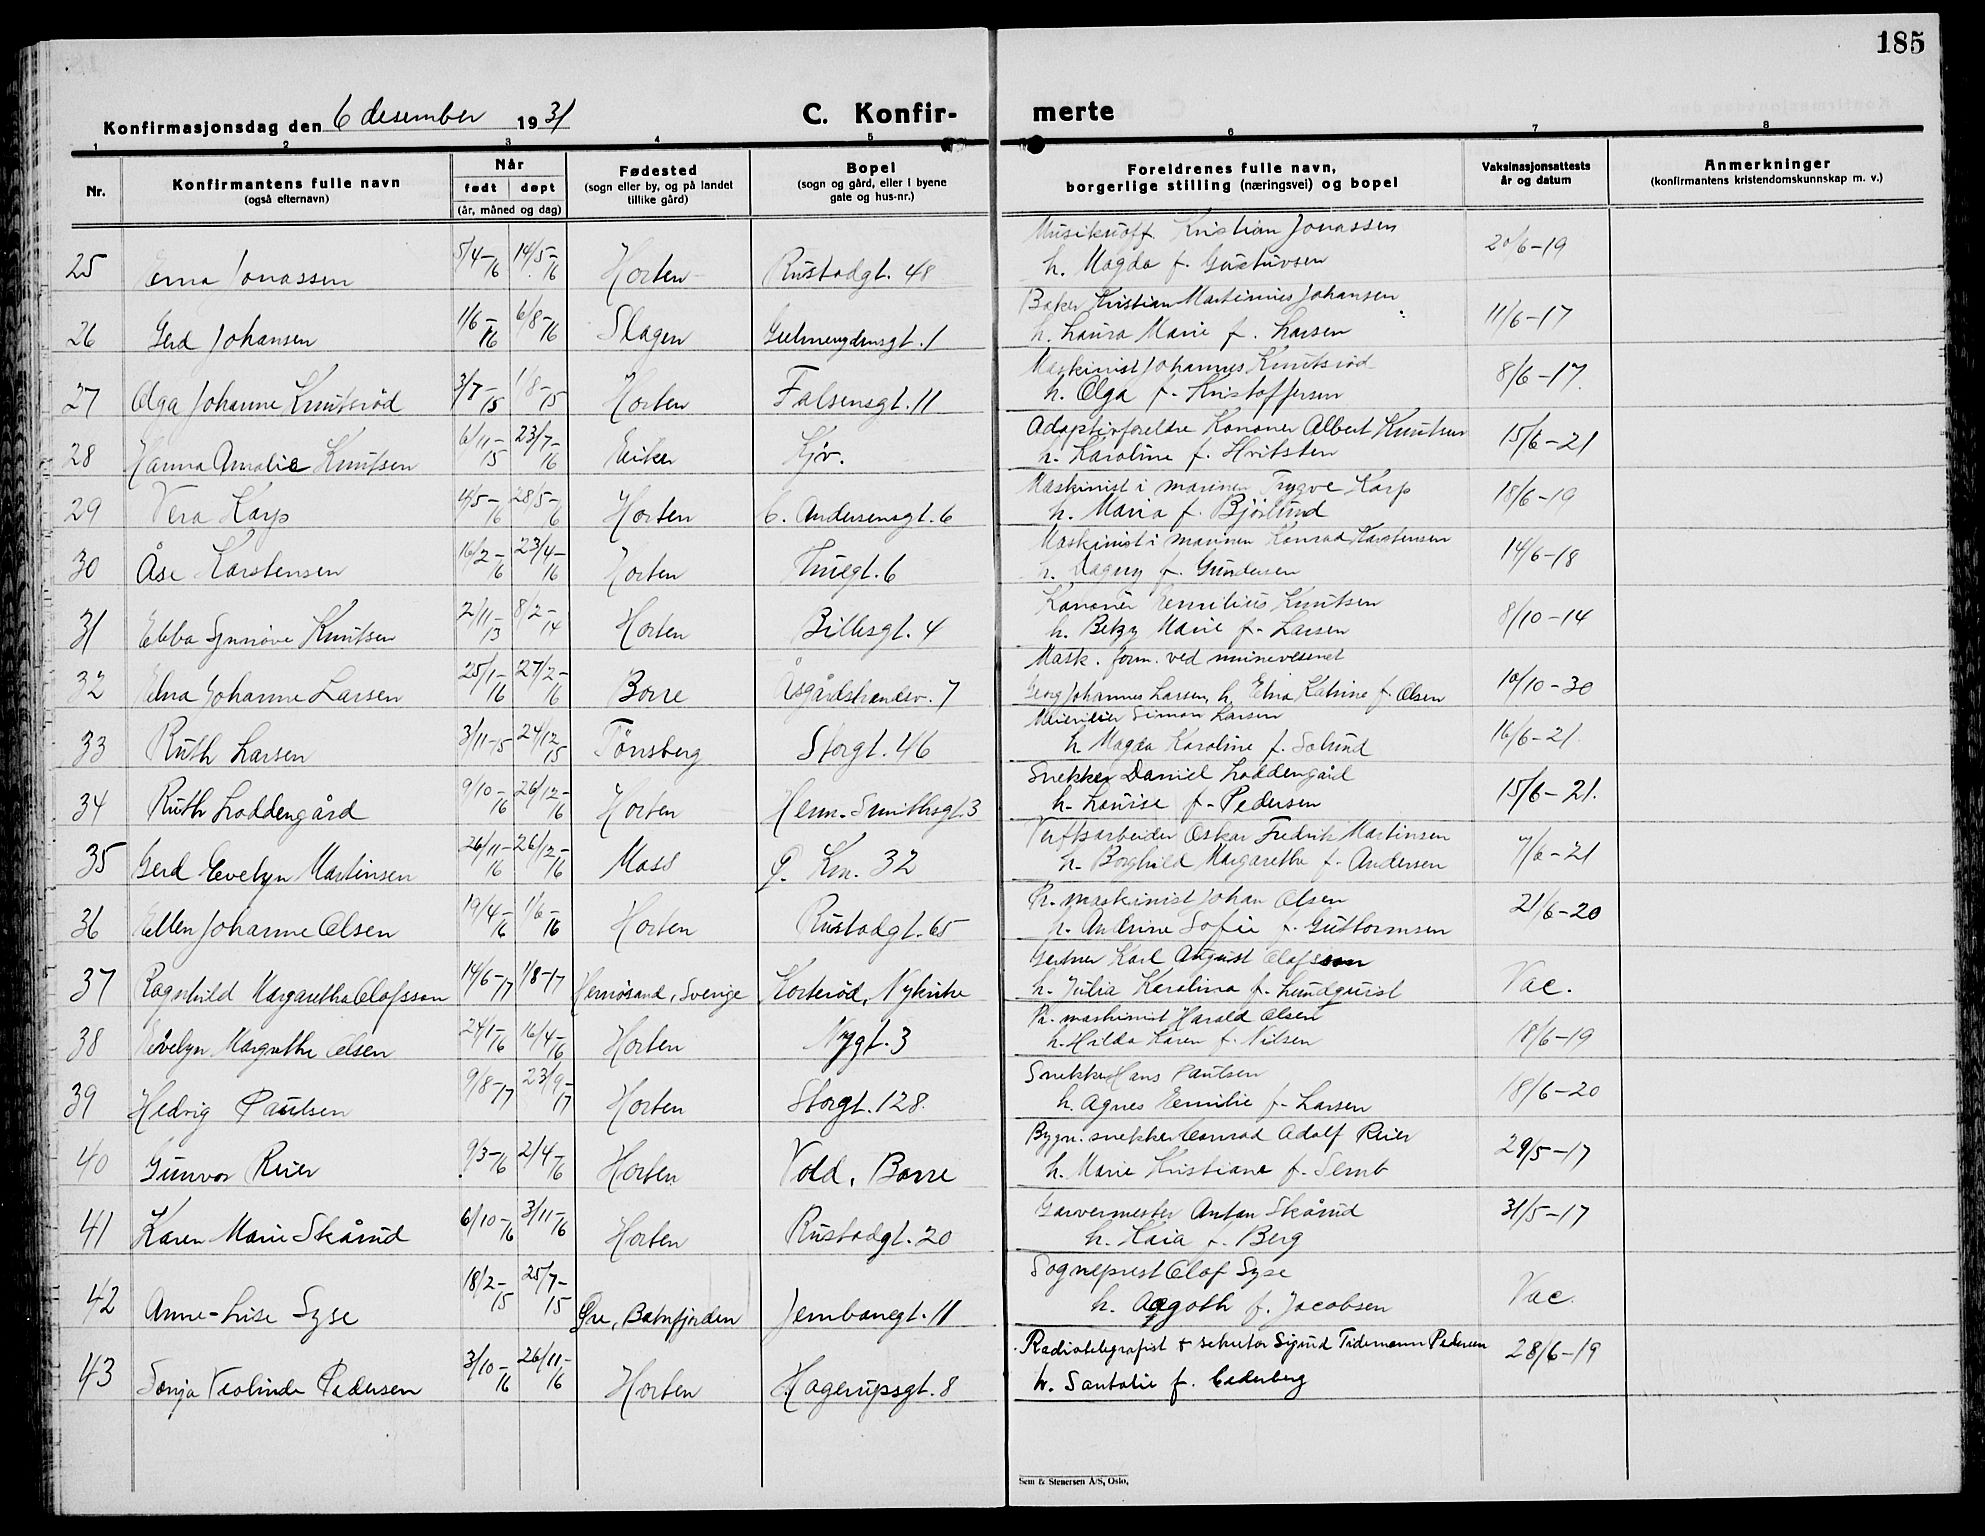 185
Konfirmasjonsdag den 6 desember 1931
C. Konfir- merte
1 2 3 4 5 6 7 8
Nr.
Konfirmantens fulle navn
(også efternavn)
Når
født døpt
(år, måned og dag)
Fødested
(sogn eller by, og på landet
tillike gård)
Bopel
(sogn og gård, eller i byene
gate og hus-nr.)
Foreldrenes fulle navn,
borgerlige stilling (næringsvei) og bopel
Vaksinasjonsattests
år og datum
Anmerkninger
(konfirmantens kristendomskunnskap m. v.)
Musikuoff. Kristian Jonassen
25 Erna Jonassen 5/4-16 14/5-16 Horten Rustadgt. 48 h. Magda f. Gustavsen 20/6-19
Baker Kristian Martinius Johansen
26 Gerd Johansen 1/6-16 6/8-16 Slagen h. Laura Marie f. Larsen 11/6-17
Maskinist Johannes Knutsrød
27 Olga Johanne Knutsrød 3/7-15 1/8-15 Horten Falsensgt. 11 h. Olga f. Kristoffersen 8/6-17.
Adoptivforeldre Kanoner Albert Knutsen
28 Hanna Amalie Knutsen 6/11-15 23/7-16 Eiker h. Karoline f. Hvitsten 15/6-21
Maskinist i marinen Trygve Karp
29 Vera Karp 4/5-16 28/5-6 Horten C. Andersensgt. 6 h. Maria f. Bjørlund 18/6-19
Maskinist i marinen Konrad Karstensen
30 Åse Karstensen 16/2-16 23/4-16 Horten Thuegt. 6 h. Dagny f. Gundersen 14/6-18
Kanonér Emilius Knutsen
31 Ebba Synnøve Knutsen 2/11-13 8/2-14 Horten Billesgt. 4 h. Betzy Marie f. Larsen 8/10-14
Mask. form. ved minevesenet
32 Elna Johanne Larsen 25/1-16 27/2-16 Borre Åsgårdstrandsv. 7 Georg Johannes Larsen, h. Elna Katrine f. Olsen 10/10-30
Simon Larsen
33 Ruth Larsen 3/11-15 24/12 15 Tönsberg Storgt. 46 h. Magda Karoline f. Solund 16/6-21.
Snekker Daniel Loddengård
34 Ruth Loddengård 9/10-16 26/12-16 Horten Herm. Smithsgt. 3 h. Louise f. Pedersen 15/6-21.
Verftsarbeider Oskar Fredrik Martinsen
35 Gerd Evelyn Martinsen 26/11-16 26/12-16 Moss Km. 32 h. Borghild Margarethe f. Andersen
R. maskinist Johan Olsen
36 Ellen Johanne Olsen 19/4-16 1/6-16 Horten Rustadgt. 65 h. Andrine Sofie f. Guttormsen 21/6-20
Gartner Karl August Olofsson
37 Ragnhild Margaretha Olofsson 14/6-17 1/8-17 Hernösand, Sverige Korterød, Nykirke h. Julia Karolina f. Lundquist Vac.
R. maskinist Harald Olsen
38 Evelyn Margrethe Olsen 24/1-16 16/4-16 Horten Nygt. 3 h. Hilda Karen f. Nilsen 18/6-19
Snekker Hans Paulsen
39 Hedvig Paulsen 9/8-17 23/9-17 Horten Storgt. 128. h. Agnes Emilie f. Larsen 18/6-20
Bygn. snekker Conrad Adolf Reier
40 Gunvor Reier 9/3-16 2/4-16 Horten Vold, Borre h. Marie Kristiane f. Semb 29/5-17
Garvermester Anton Skårud
41 Karen Marie Skårud 6/10-16 3/11-16 Horten Rustadgt. 20 h. Kaia f. Berg 31/5-17
Sogneprest Olof Syse
42 Anne-Lise Syse 18/2-15 25/7-15 Øre, Batnfjorden Jernbanegt. 11 h. Aagoth f. Jacobsen Vac.
Radiotelegrafist & sekretær Sigurd Tidemann Pedersen
43 Sonja Pedersen 3/10-16 26/11-16 Horten Hagerupsgt. 8 h. Santalie f. Cederberg 28/6-19
Sem & Stenersen A/S, Oslo,